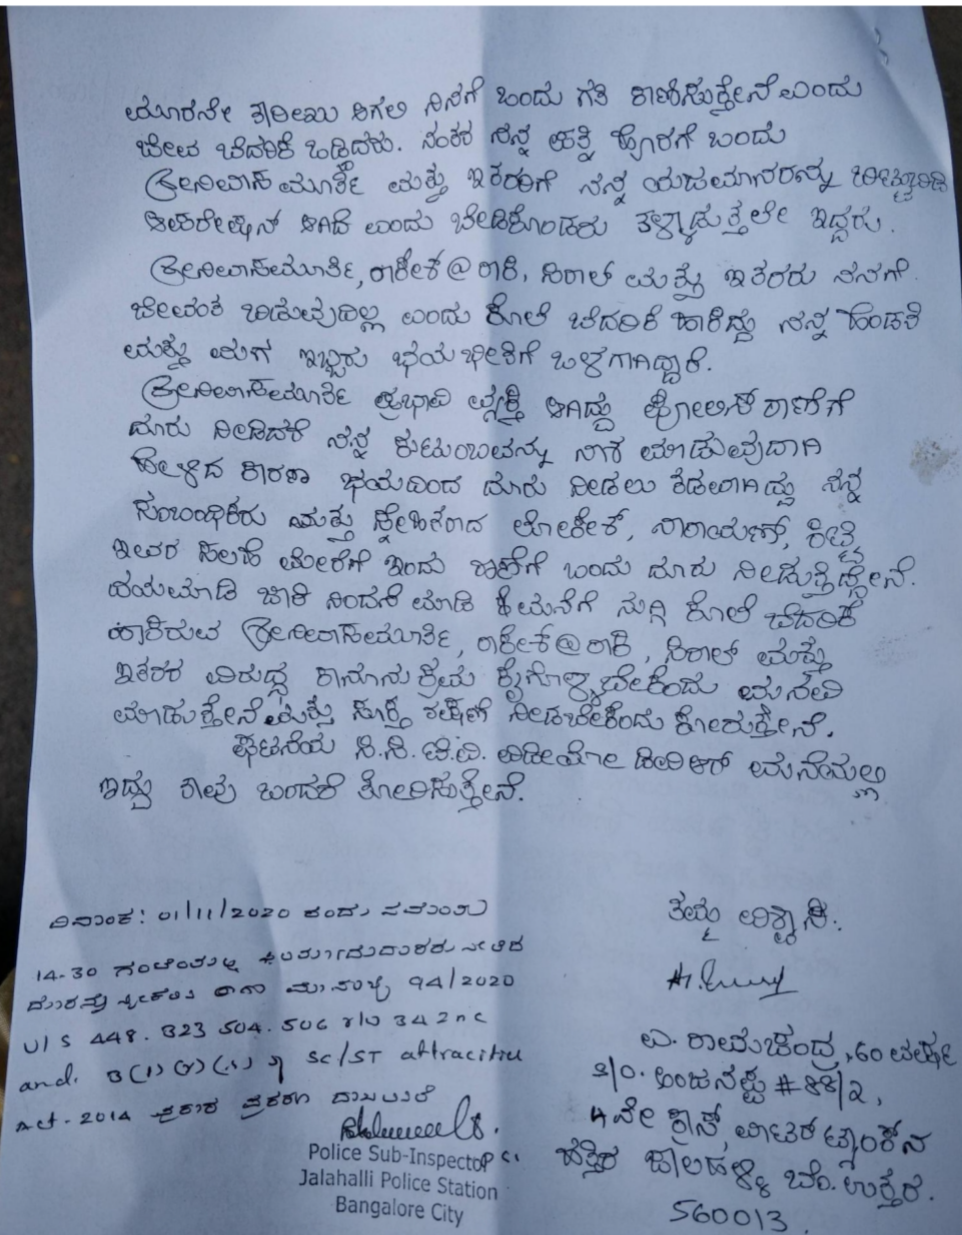 ಯಾರನೇ ಕರೀಖು ಆಗಲಿ ನಿನಗೆ ಒಂದು ಗತಿ ಕಾಣಿಸುತ್ತೇನೆ ಎಂದು
ಜೀವ ಬೆದರಿಕೆ ಒಡ್ಡಿದರು. ನಂತರ ನನ್ನ ಪತ್ನಿ ಹೊರಗೆ ಬಂದು
ಶ್ರೀನಿವಾಸಮೂರ್ತಿ ಮತ್ತು ಇತರರಿಗೆ ನನ್ನ ಯಜಮಾನರನ್ನು ಬಿಟ್ಟುಬಿಡಿ
ಆಪರೇಷನ್ ಆಗಿದೆ ಎಂದು ಬೇಡಿಕೊಂಡರು ತಳ್ಳಾಡುತ್ತಲೇ ಇದ್ದರು.
ಶ್ರೀನಿವಾಸಮೂರ್ತಿ, ರಾಕೇಶ್@ರಾಕಿ, ಮತ್ತು ಇತರರು ನನಗೆ
ಜೀವಂತ ಬಿಡುವುದಿಲ್ಲ ಎಂದು ಕೊಲೆ ಬೆದರಿಕೆ ಹಾಕಿದ್ದು ನನ್ನ ಹೆಂಡತಿ
ಮತ್ತು ಮಗ ಇಬ್ಬರು ಭಯಭೀತಿಗೆ ಒಳಗಾಗಿದ್ದಾರೆ.
ಶ್ರೀನಿವಾಸಮೂರ್ತಿ ಪ್ರಭಾವಿ ವ್ಯಕ್ತಿ ಆಗಿದ್ದು ಪೋಲಿಸ್ ಠಾಣೆಗೆ
ದೂರು ನೀಡಿದರೆ ನನ್ನ ಕುಟುಂಬವನ್ನು ನಾಶ ಮಾಡುವುದಾಗಿ
ಹೇಳಿದ ಕಾರಣ ಭಯದಿಂದ ದೂರು ನೀಡಲು ತಡವಾಗಿದ್ದು ನನ್ನ
ಸಂಬಂಧಿಕರು ಮತ್ತು ಸ್ನೇಹಿತರಾದ ಲೋಕೇಶ್, ನಾರಾಯಣ್, ಕಿಟ್ಟಿ
ಇವರ ಸಲಹೆ ಮೇರೆಗೆ ಇಂದು ಠಾಣೆಗೆ ಬಂದು ದೂರು ನೀಡುತ್ತಿದ್ದೇನೆ.
ದಯಮಾಡಿ ಜಾತಿ ನಿಂದನೆ ಮಾಡಿ ಮನೆಗೆ ನುಗ್ಗಿ ಕೊಲೆ ಬೆದರಿಕೆ
ಹಾಕಿರುವ ಶ್ರೀನಿವಾಸಮೂರ್ತಿ, ರಾಕೇಶ್@ರಾಕಿ, ಮತ್ತು
ಇತರರ ವಿರುದ್ಧ ಕಾನೂನು ಕ್ರಮ ಕೈಗೊಳ್ಳಬೇಕೆಂದು ಮನವಿ
ಮಾಡುತ್ತೇನೆ ಮತ್ತು ಸೂಕ್ತ ರಕ್ಷಣೆ ನೀಡಬೇಕೆಂದು ಕೋರುತ್ತೇನೆ.
ಘಟನೆಯ ಸಿ.ಸಿ.ಟಿ.ವಿ. ವಿಡೀಯೋ ಡಿವಿಆರ್ ಮನೆಯಲ್ಲಿ
ಇದ್ದು ತಾವು ಬಂದರೆ ತೋರಿಸುತ್ತೇನೆ.
ತಮ್ಮ ವಿಶ್ವಾಸಿ.
ಎ. ರಾಮಚಂದ್ರ, 60 ವರ್ಷ
S/O. ಅಂಜನಪ್ಪ #88/2,
4ನೇ ಕ್ರಾಸ್, ವಾಟರ್ ಟ್ಯಾಂಕ್‌ನ
ಹತ್ತಿರ ಜಾಲಹಳ್ಳಿ ಬೆಂ. ಉತ್ತರ.
560013.
ದಿನಾಂಕ: 01/11/2020 ರಂದು
14-30 ಗಂಟೆಯಲ್ಲಿ ಪಿರ್ಯಾದುದಾರರು ನೀಡಿದ
ದೂರನ್ನು ಸ್ವೀಕರಿಸಿ ಠಾಣಾ ಮೊ.ಸಂಖ್ಯೆ 94/2020
U/S 448. 323 504. 506 r/w 34 IPC
and. 3(1)(r)(s) of SC/ST attracities
Act-2014 ಪ್ರಕಾರ ಪ್ರಕರಣ ದಾಖಲಿಸಿದೆ
Police Sub-Inspector
Jalahalli Police Station
Bangalore City